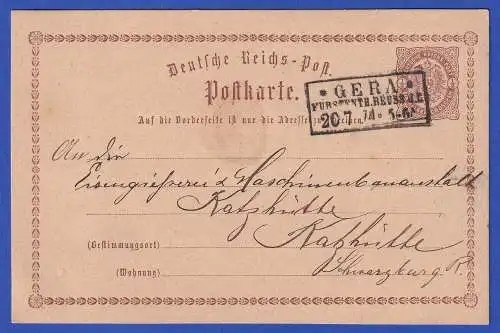 Deutsche Reichs-Post.
Postkarte.
* GERA *
FÜRSTENTH. REUSS J.L.
20 7 74
Auf die Vorderseite ist nur die Adresse zu schreiben.
An die
Eisengiesserei & Maschinenbauanstalt
Katzhütte
(Bestimmungsort) Katzhütte
(Wohnung) Schwarzburg R.